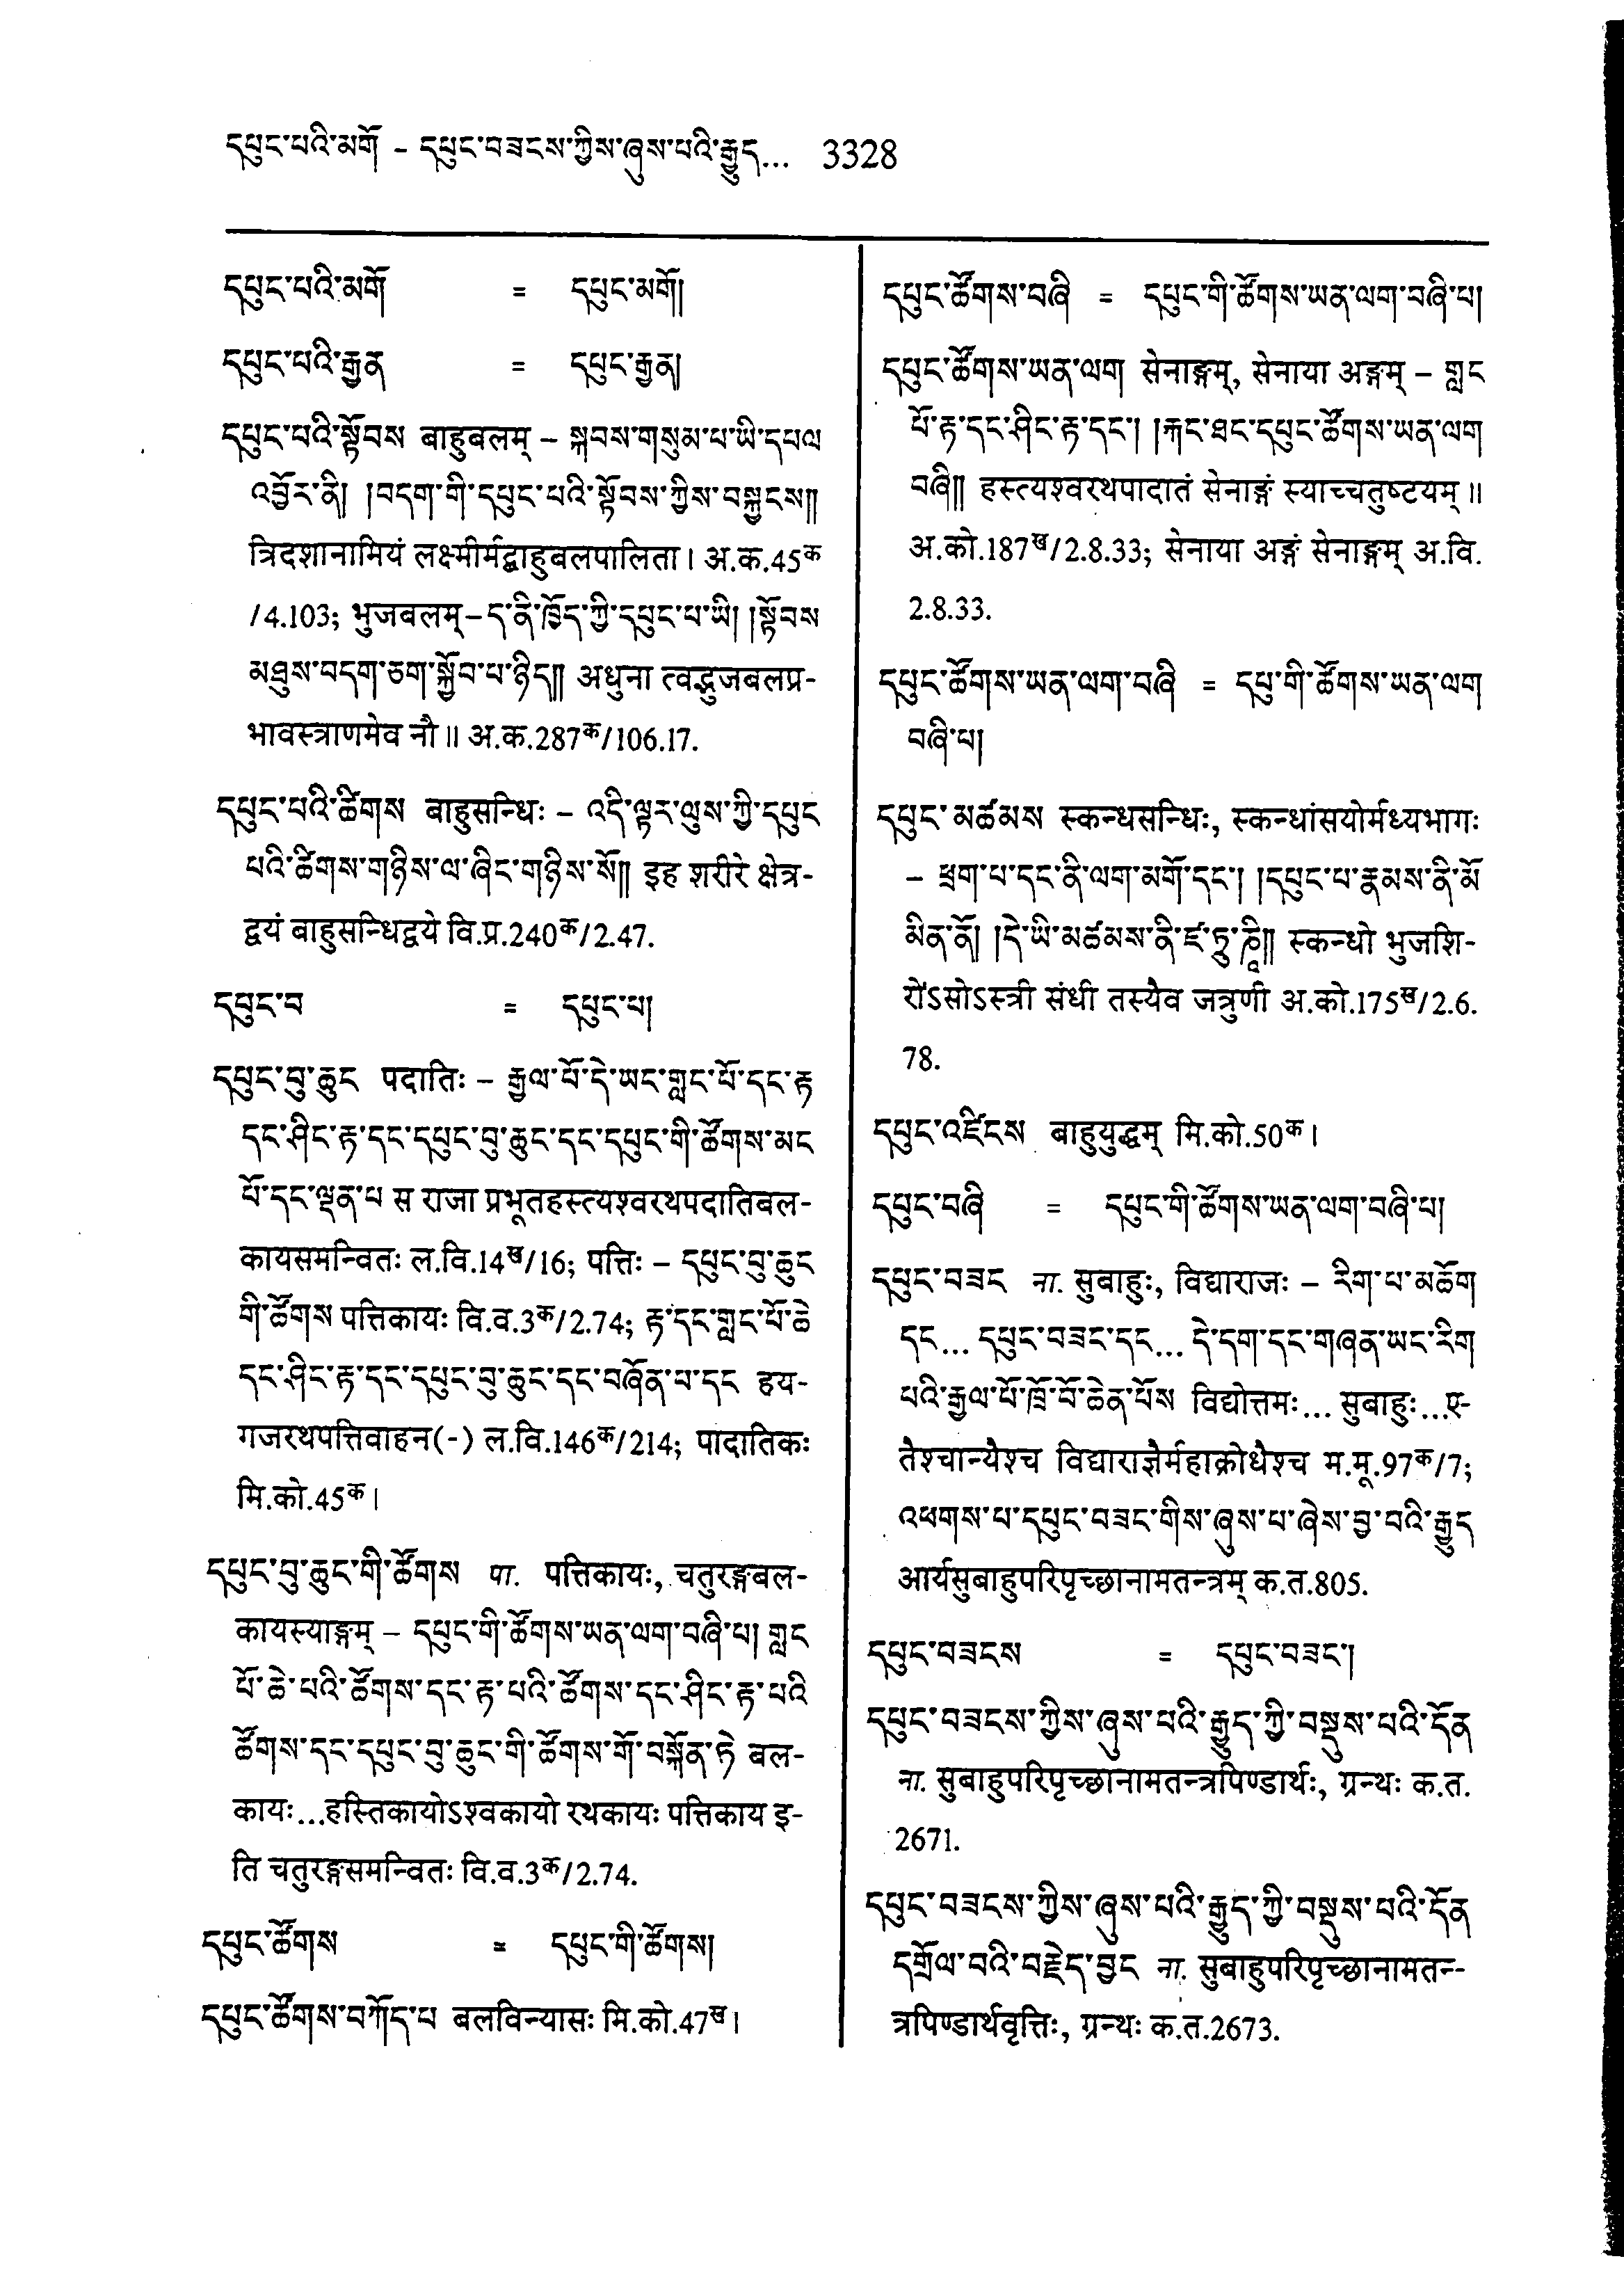 དཔུང་པའི་མགོ – དཔུང་བཟངས་ཀྱིས་ཞུས་པའི་རྒྱུད... 3328
དཔུང་པའི་མགོ = དཔུང་མགོ།
དཔུང་པའི་རྒྱན = དཔུང་རྒྱན།
དཔུང་པའི་སྟོབས बाहुबलम् – སྐབས་གསུམ་པ་ཡི་དཔལ
འབྱོར་ནི། །བདག་གི་དཔུང་པའི་སྟོབས་ཀྱིས་བསྐྱངས༎
त्रिदशानामियं लक्ष्मीर्मद्बाहुबलपालिता। अ.क.45क
/4.103; भुजबलम्–ད་ནི་ཁྱོད་ཀྱི་དཔུང་པ་ཡི། །སྟོབས
མཐུས་བདག་ཅག་སྐྱོབ་པ་ཉིད༎ अधुना त्वद्भुजबलप्र-
भावस्त्राणमेव नौ॥ अ.क.287क/106.17.
དཔུང་པའི་ཚིགས बाहुसन्धिः – འདི་ལྟར་ལུས་ཀྱི་དཔུང
པའི་ཚིགས་གཉིས་ལ་ཞིང་གཉིས་སོ༎ इह शरीरे क्षेत्र-
द्वयं बाहुसन्धिद्वये वि.प्र.240क/2.47.
དཔུང་བ = དཔུང་པ།
དཔུང་བུ་ཆུང पदातिः – རྒྱལ་པོ་དེ་ཡང་གླང་པོ་དང་རྟ
དང་ཤིང་རྟ་དང་དཔུང་བུ་ཆུང་དང་དཔུང་གི་ཚོགས་མང
པོ་དང་ལྡན་པ स राजा प्रभूतहस्त्यश्वरथपदातिबल-
कायसमन्वितः ल.वि.14ख/16; पत्तिः – དཔུང་བུ་ཆུང
གི་ཚོགས पत्तिकायः वि.व.3क/2.74; རྟ་དང་གླང་པོ་ཆེ
དང་ཤིང་རྟ་དང་དཔུང་བུ་ཆུང་དང་བཞོན་པ་དང हय-
गजरथपत्तिवाहन(-) ल.वि.146क/214; पादातिकः
मि.को.45क।
དཔུང་བུ་ཆུང་གི་ཚོགས पा. पत्तिकायः, चतुरङ्गबल-
कायस्याङ्गम् – དཔུང་གི་ཚོགས་ཡན་ལག་བཞི་པ། གླང
པོ་ཆེ་པའི་ཚོགས་དང་རྟ་པའི་ཚོགས་དང་ཤིང་རྟ་པའི
ཚོགས་དང་དཔུང་བུ་ཆུང་གི་ཚོགས་གོ་བསྐོན་ཏེ बल-
कायः...हस्तिकायोऽश्वकायो रथकायः पत्तिकाय इ-
ति चतुरङ्गसमन्वितः वि.व.3क/2.74.
དཔུང་ཚོགས = དཔུང་གི་ཚོགས།
དཔུང་ཚོགས་བཀོད་པ बलविन्यासः मि.को.47ख।
དཔུང་ཚོགས་བཞི = དཔུང་གི་ཚོགས་ཡན་ལག་བཞི་པ།
དཔུང་ཚོགས་ཡན་ལག सेनाङ्गम्, सेनाया अङ्गम् – གླང
པོ་རྟ་དང་ཤིང་རྟ་དང་། །རྐང་ཐང་དཔུང་ཚོགས་ཡན་ལག
བཞི༎ हस्त्यश्वरथपादातं सेनाङ्गं स्याच्चतुष्टयम्॥
अ.को.187ख/2.8.33; सेनाया अङ्गं सेनाङ्गम् अ.वि.
2.8.33.
དཔུང་ཚོགས་ཡན་ལག་བཞི = དཔུ་གི་ཚོགས་ཡན་ལག
བཞི་པ།
དཔུང་མཚམས स्कन्धसन्धिः, स्कन्धांसयोर्मध्यभागः
– ཕྲག་པ་དང་ནི་ལག་མགོ་དང་། །དཔུང་པ་རྣམས་ནི་མོ
མིན་ནོ། །དེ་ཡི་མཚམས་ནི་ཛ་ཏྲུ་ཎཱི༎ स्कन्धो भुजशि-
रोंऽसोऽस्त्री संधी तस्यैव जत्रुणी अ.को.175ख/2.6.
78.
དཔུང་འཛིངས बाहुयुद्धम् मि.को.50क।
དཔུང་བཞི = དཔུང་གི་ཚོགས་ཡན་ལག་བཞི་པ།
དཔུང་བཟང ना. सुबाहुः, विद्याराजः – རིག་པ་མཆོག
དང... དཔུང་བཟང་དང... དེ་དག་དང་གཞན་ཡང་རིག
པའི་རྒྱལ་པོ་ཁྲོ་བོ་ཆེན་པོས विद्योत्तमः... सुबाहुः...ए-
तैश्चान्यैश्च विद्याराज्ञैर्महाक्रोधैश्च म.मू.97क/7;
འཕགས་པ་དཔུང་བཟང་གིས་ཞུས་པ་ཞེས་བྱ་བའི་རྒྱུད
आर्यसुबाहुपरिपृच्छानामतन्त्रम् क.त.805.
དཔུང་བཟངས = དཔུང་བཟང་།
དཔུང་བཟངས་ཀྱིས་ཞུས་པའི་རྒྱུད་ཀྱི་བསྡུས་པའི་དོན
ना. सुबाहुपरिपृच्छानामतन्त्रपिण्डार्थः, ग्रन्थः क.त.
2671.
དཔུང་བཟངས་ཀྱིས་ཞུས་པའི་རྒྱུད་ཀྱི་བསྡུས་པའི་དོན
དགྲོལ་བའི་བརྗེད་བྱང ना. सुबाहुपरिपृच्छानामतन्-
त्रपिण्डार्थवृत्तिः, ग्रन्थः क.त.2673.